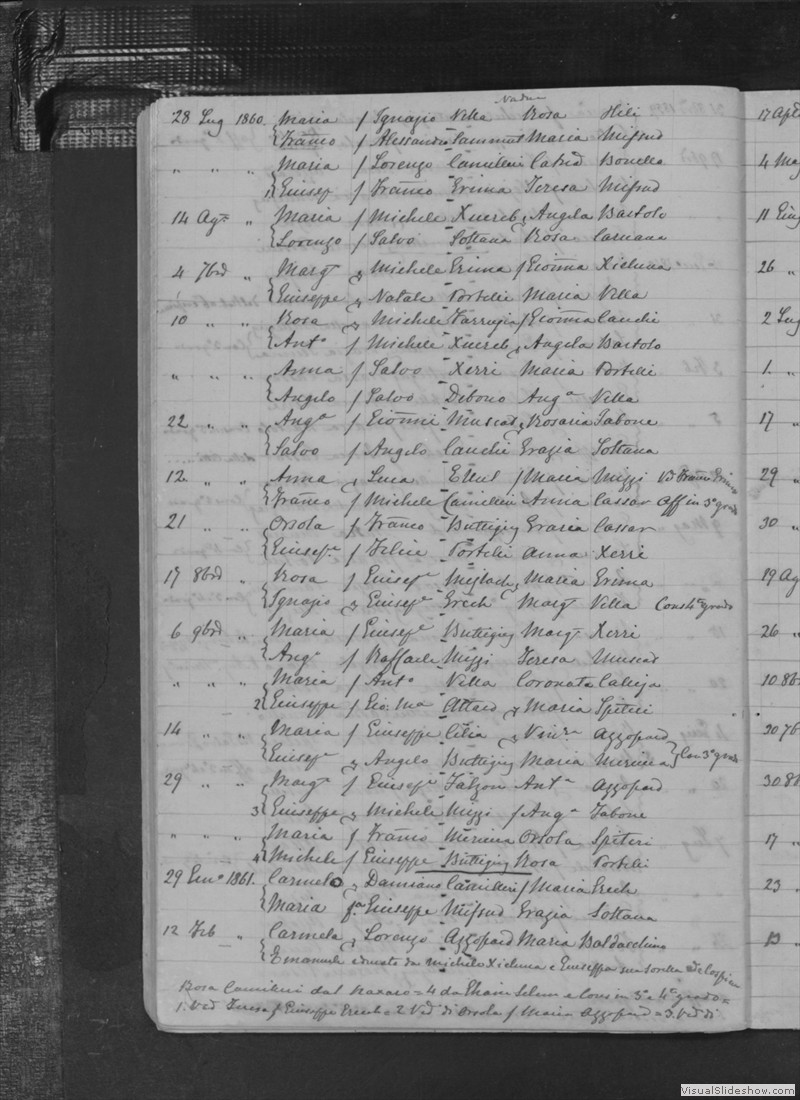 Nadur
28 Lug 1860. Maria f Ignazio Vella Rosa Hili
Franco f Alessandro Sammut Maria Mifsud
" " " Maria f Lorenzo Camilleri Catrid Bonello
1 Giusep f Franco Grima Teresa Mifsud
14 Agto " Maria f Michele Xuereb & Angela Bartolo
Lorenzo f Salvo Sultana Rosa Caruana
4 7bre " Margta & Michele Grima f Gioanna Xicluna
Giuseppe & Natale Portelli Maria Vella
10 " " Rosa & Michele Farrugia f Gioanna Cauchi
Anto f Michele Xuereb & Angela Bartolo
" " " Anna f Salvo Xerri Maria Portelli
Angelo f Salvo Debono Anga Vella
22 " " Anga f Gioanni Muscat & Rosaria Tabone
Salvo f Angelo Cauchi Grazia Sultana
12 " " Anna & Luca Ellul f Maria Mizzi Vd Franco
Franco f Michele Camilleri Anna Cassar Aff in 3o grado
21 " " Orsola f Franco Buttigieg Grazia Cassar
Giuseppe f Felice Portelli Anna Xerri
17 8bre " Rosa f Giusepe Meylach & Maria Grima
Ignazio & Giusepe Grech Margta Vella Cons 4o grado
6 9bre " Maria f Giusepe Buttigieg Margta Xerri
Ango f Raffaele Mizzi Teresa Muscat
" " " Maria f Anto Vella Coronata Calleja
2 Giuseppe f Gio: Ma Attard & Maria Spiteri
14 " " Maria f Giuseppe Cilia & Vinza Azzopard
Giusepe & Angelo Buttigieg Maria Mercieca Con 3o grado
29 " " Margta f Giusepe Falzon Anta Azzopard
3 Giuseppe & Michele Mizzi f Anga Tabone
" " " Maria f Franco Mercieca Orsola Spiteri
4 Michele f Giuseppe Buttigieg Rosa Portelli
29 Geno 1861. Carmelo & Damiano Camilleri f Maria Grech
Maria fa Giuseppe Mifsud Grazia Sultana
12 Feb " Carmela & Lorenzo Azzopard Maria Baldacchino
Emanuele educato da Michele Xicluna e Giuseppa sua sorella
Rosa Camilleri dal Naxaro = 4 da Ghain Selem e Cons in 3o e 4o grado =
1. Ved Teresa f Giuseppe Grech = 2 Ved di Orsola f Maria Azzopard = 3. Ved di
17 Apl
4 Mag
11 Giug
26 "
2 Lug
1. "
17 "
29 "
30 "
19 Ag
26 "
10. 8b
30 7b
30 8b
17 "
23 "
13 "
VisualSlideshow.com